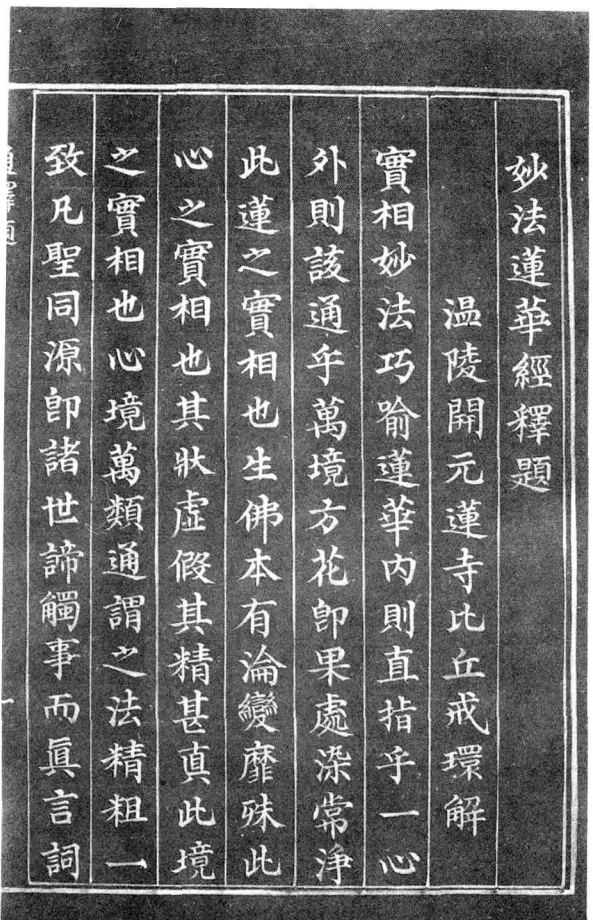 妙法蓮華經釋題
温陵開元蓮寺比丘戒環解
實相妙法巧喻蓮華内則直指乎一心
外則該通乎萬境方花卽果處染常淨
此蓮之實相也生佛本有淪變靡殊此
心之實相也其狀虛假其精甚真此境
之實相也心境萬類通謂之法精粗一
致凡聖同源卽諸世諦觸事而眞言詞